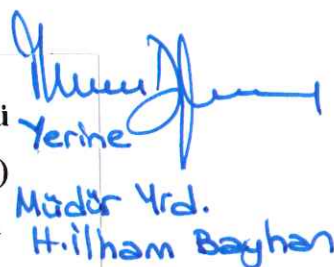 ü
Yerine
)
Müdür Yrd.
H.ilham Bayhan